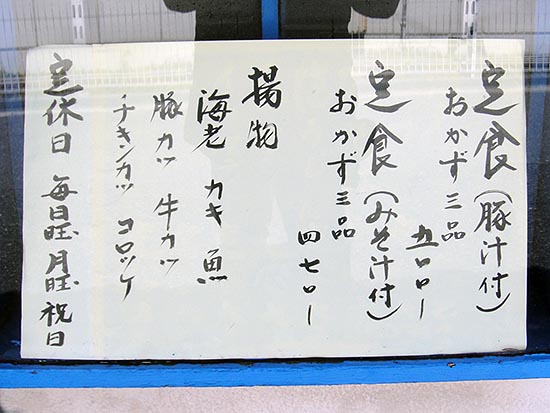 定食(豚汁付)
おかず三品
五〇〇ー
定食(みそ汁付)
おかず三品
四七〇ー
揚物
海老 カキ 魚
豚カツ 牛カツ
チキンカツ コロッケ
定休日 毎日旺 月旺 祝日